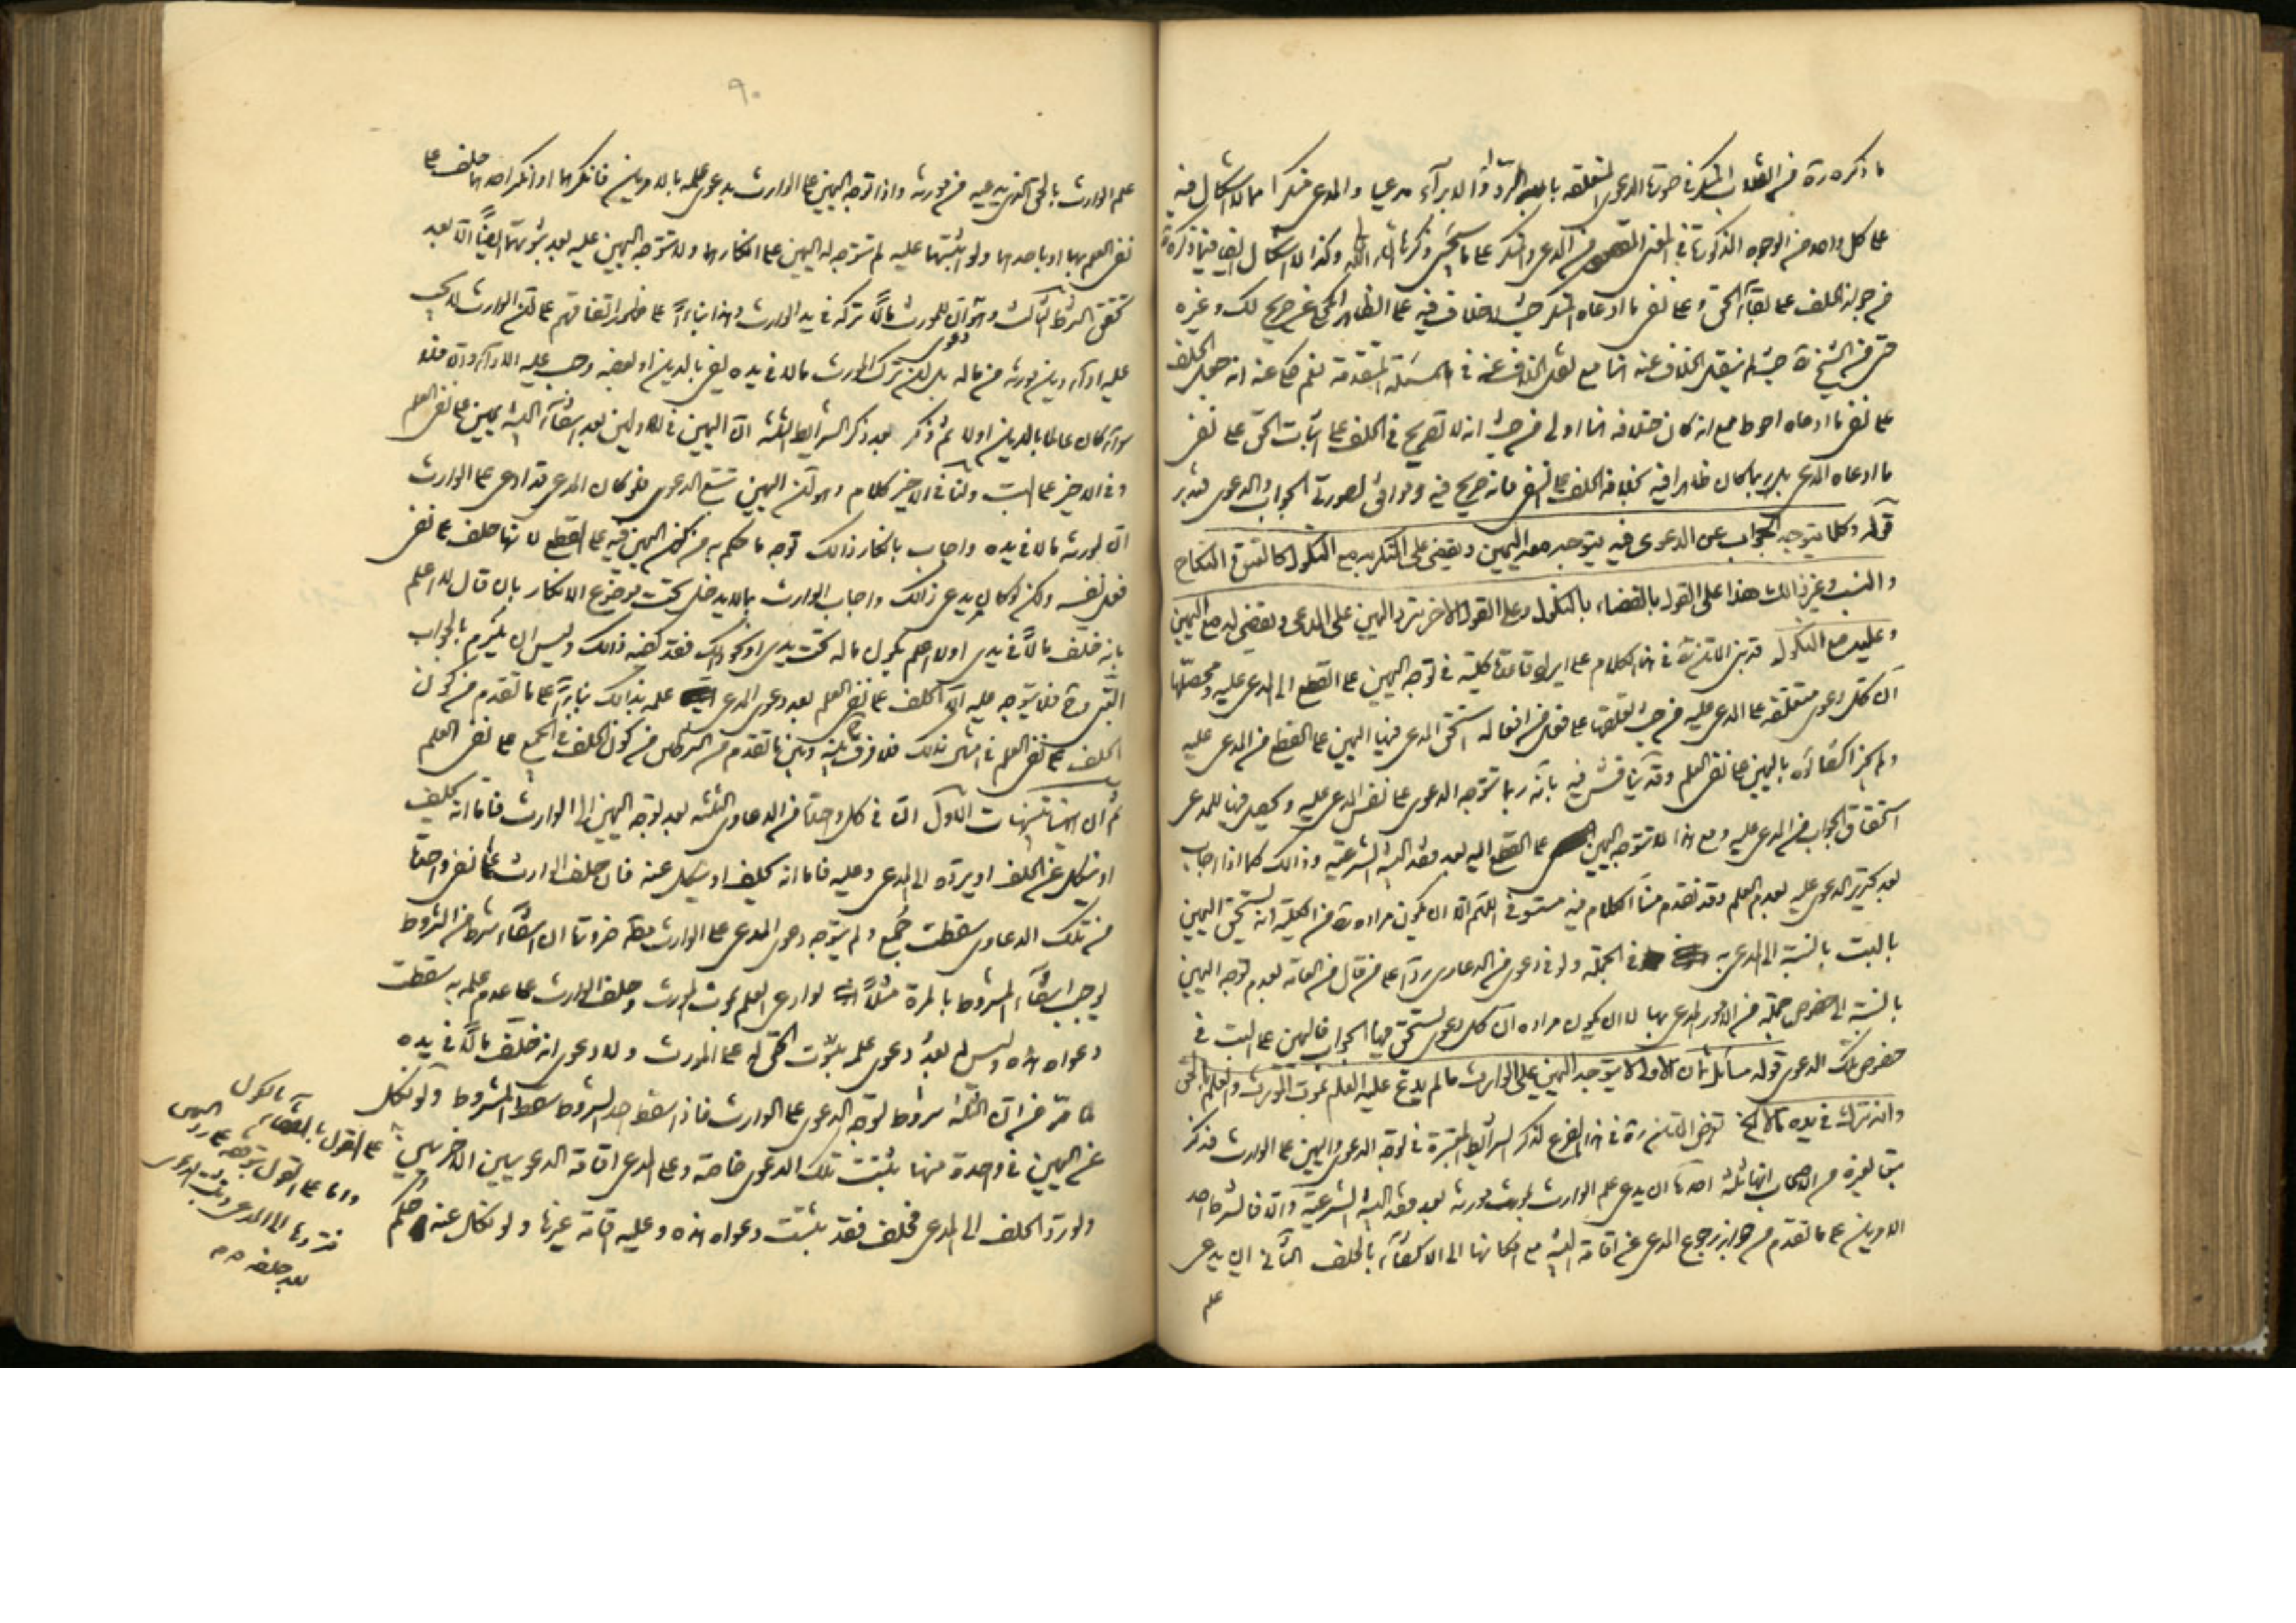 ما ذكره ره من انقلاب المنكر في صورة الدعوى المتعلقه بالرد والابرآء مدعيا والمدعي منكرا مما لا اشكال فيه
على كل واحد من الوجوه المذكورة في المدعي والمنكر على ما سيجئ ذكرها انش الله وكذا لا اشكال ايضا فيما ذكره
من جواز الحلف على بقآء الحق وعلى نفي ما ادعاه المنكر حيث لا خلاف فيه على الظاهر المحكي عن صريح لك وغيره
حتى من الشيخ ره حيث لم ينقل الخلاف عنه هنا مع نقل الخلاف عنه في المسئلة المتقدمة نعم حكي عنه انه جعل الحلف
على نفي ما ادعاه احوط مع انه كان خلافه هنا اولى من حيث انه لا تصريح في الحلف على اثبات الحق على نفي
ما ادعاه المدعي بل ربما كان ظاهرا فيه بخلاف الحلف على النفي فانه صريح فيه وموافق لصورة الجواب والدعوى فتدبر
قوله وكلما يتوجه الجواب عن الدعوى فيه يتوجه معه اليمين ويقضى على المنكر به مع النكول كالعتق والنكاح
والنسب وغير ذلك هذا على القول بالقضاء بالنكول وعلى القول الاخر ترد اليمين على المدعي ويقضى له مع اليمين
وعليه مع النكول قد بنى المصنف ره في هذا الكلام على ايراد قاعدة كلية في توجه اليمين على القطع الى المدعي عليه ومحصلها
ان كل دعوى متعلقه على المدعي عليه من حيث تعلقها على فعل من افعاله استحق المدعي فيها اليمين على القطع من المدعي عليه
ولم يجز اكتفاؤه باليمين على نفي العلم وقد يناقش فيه بانه ربما تتوجه الدعوى على نفس المدعي عليه ويحصل فيها للمدعي
استحقاق الجواب من المدعي عليه ومع هذا لا تتوجه اليمين على القطع اليه بعد فقد البينة الشرعية وذلك كما اذا اجاب
بعد تحرير الدعوى عليه بعدم العلم وقد تقدم منا الكلام فيه مستوفى اللهم الا ان يكون مراده ره من الكلية انه يستحق اليمين
بالبت بالنسبة الى المدعي به في الجملة ولو في دعوى من الدعاوى ردا على من قال من العامه بعدم توجه اليمين
بالنسبة الى خصوص جملة من الامور المدعى بها لا ان يكون مراده ان كل دعوى يستحق فيها الجواب فاليمين على البت في
خصوص تلك الدعوى قوله مسائل ثمان الاولى لا يتوجه اليمين على الوارث ما لم يدع عليه العلم بموت المورث والعلم بالحق
وانه ترك في يده مالا الخ تعرض المصنف ره في هذا الفرع لذكر الشرائط المعتبرة في توجه الدعوى واليمين على الوارث فذكر
تبعا لغيره من الاصحاب انها ثلثه احدها ان يدعي علم الوارث بموت مورثه بعد فقد البينة الشرعية والا فالشرط احد
الامرين على ما تقدم من جواز رجوع المدعي عن اقامة البينة مع امكانها الى الاكتفاء بالحلف الثاني ان يدعي
علم
٩٠
علم الوارث بالحق الذي يدعيه من مورثه واذا توجه اليمين على الوارث بدعوى علمه بالامرين فانكرهما او انكر احدهما حلف على
نفي العلم بهما او باحدهما ولو اثبتهما عليه لم تتوجه له اليمين على انكارهما ولا تتوجه اليمين عليه بعد ثبوتهما ايضا الا بعد
تحقق الشرط الثالث وهو ان للمورث مالا تركه في يد الوارث وهذا بناءً على ظهور اتفاقهم على ان الوارث لا يجب
عليه ادآء دين مورثه من ماله بل ان ترك المورث مالا في يده يفي بالدين او بعضه وجب عليه الادآء والا فلا
سوآء كان عالما بالدين اولا ثم ذكر بعد ذكر الشرايط الثلثه ان اليمين في الاولين بعد انتفآء البينة يمين على نفي العلم
وفي الاخير على البت ولنا في الاخير كلام وهو ان اليمين تتبع الدعوى فلو كان المدعي قد ادعى على الوارث
ان لمورثه مالا في يده واجاب بانكار ذلك توجه ما حكم به من كون اليمين فيه على القطع لانها حلف على نفي
فعل نفسه ولكن لو كان يدعي ذلك واجاب الوارث بما لا يدخل تحت موضوع الانكار بان قال لا اعلم
بانه خلف مالا في يدي او لا اعلم بكون ماله تحت يدي او نحو ذلك فقد كفيه ذلك وليس ان يلتزم بالجواب
البتي فلا يتوجه عليه الا الحلف على نفي العلم بعد دعوى المدعي علمه بذلك بناءً على ما تقدم من كون
الحلف على نفي العلم في مثل ذلك فلا فرق بينه وبين ما تقدم من الشرطين من كون الحلف في الجميع على نفي العلم
ثم ان هيهنا تنبيهات الاول ان في كل واحدة من الدعاوى الثلثه بعد توجه اليمين الى الوارث فاما انه يحلف
او ينكل عن الحلف او يرده الى المدعي وعليه فاما انه يحلف او ينكل عنه فان حلف الوارث على نفي واحدة
من تلك الدعاوى سقطت جُمع ولم يتوجه دعوى المدعي على الوارث ضرورة ان انتفآء شرط من الشروط
يوجب انتفآء المشروط بالمرة مثلا لو ادعى العلم بموت المورث وحلف الوارث على عدم علمه به سقطت
دعواه هذه وليس له بعد دعوى علمه بثبوت الحق له على المورث ولا دعوى انه خلف مالا في يده
لما مر من ان الثلثة شروط لتوجه الدعوى على الوارث فاذا سقط احد الشروط سقط المشروط ولو نكل
عن اليمين في واحدة منها يثبتت تلك الدعوى خاصة وعلى المدعي اقامة الدعويين الاخريين
ولو رد الحلف الى المدعي فحلف فقد يثبتت دعواه هذه وعليه اقامة غيرها ولو نكل عنه حكم
على القول بالقضآء بالنكول
واما على القول بتوقفه على رد اليمين
فترد ها الى المدعي ويثبت الدعوى
بعد حلفه